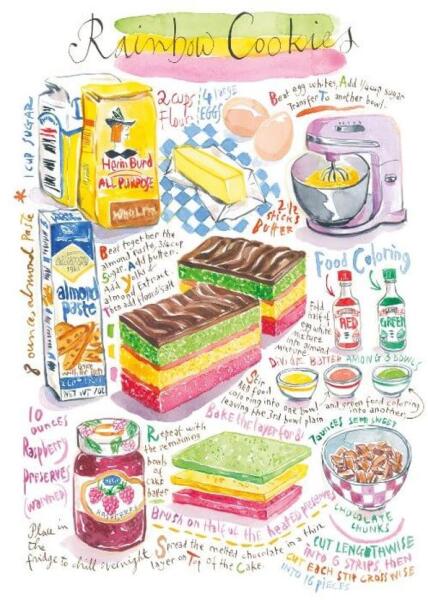 Rainbow Cookies
1 CUP SUGAR
2 cups
Flour
4 large
EGGS
Beat egg whites, Add 1/4 cup sugar
Transfer To another bowl.
ALL PURPOSE
2 1/2
STICKS
BUTTER
8 ounce almond Paste *
almond
paste
NET WT 7OZ
Beat together the
almond paste, 3/4 cup
Sugar. Add butter.
Add yolks &
almond Extract.
Then add flour & salt
Food Coloring
RED
GREEN
Fold
half of
egg white
mixture
into almond
mixture
DIVIDE BATTER AMONG 3 BOWLS
Stir
red food
coloring into one bowl
leaving the 3rd bowl plain
and green food coloring
into another
Bake the layer for 8'
10
OUNCES
Raspberry
PRESERVES
(warmed)
Repeat with
the remaining
bowls
of
cake
batter
7 ounces SEMI SWEET
CHOCOLATE
CHUNKS
Brush on Half of the heated preserves
Place in
The
fridge to chill overnight
Spread the melted chocolate in a thin
layer on Top of the Cake.
CUT LENGTHWISE
INTO 6 STRIPS, THEN
CUT EACH STIP CROSSWISE
INTO 16 PIECES